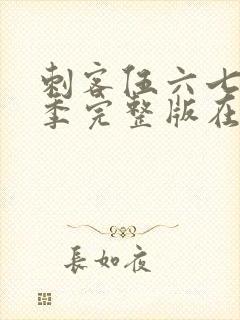 刺客伍六七
季完整版在
長如夜